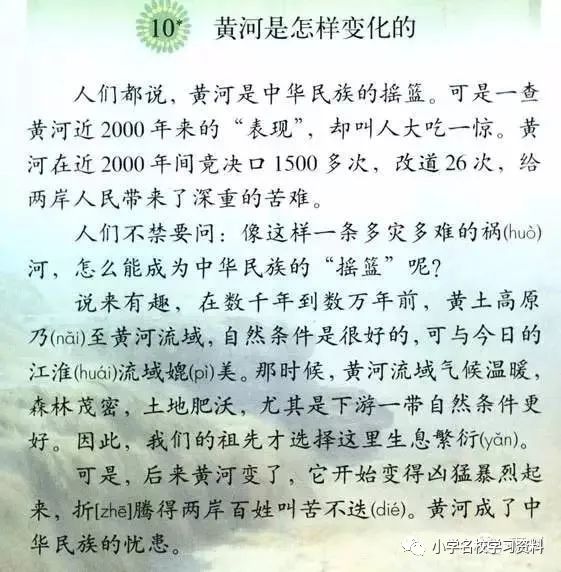 10* 黄河是怎样变化的
人们都说，黄河是中华民族的摇篮。可是一查
黄河近2000年来的“表现”，却叫人大吃一惊。黄
河在近2000年间竟决口1500多次，改道26次，给
两岸人民带来了深重的苦难。
人们不禁要问：像这样一条多灾多难的祸(huò)
河，怎么能成为中华民族的“摇篮”呢？
说来有趣，在数千年到数万年前，黄土高原
乃(nǎi)至黄河流域，自然条件是很好的，可与今日的
江淮(huái)流域媲(pì)美。那时候，黄河流域气候温暖，
森林茂密，土地肥沃，尤其是下游一带自然条件更
好。因此，我们的祖先才选择这里生息繁衍(yǎn)。
可是，后来黄河变了，它开始变得凶猛暴烈起
来，折[zhē]腾得两岸百姓叫苦不迭(dié)。黄河成了中
华民族的忧患。
小学名校学习资料